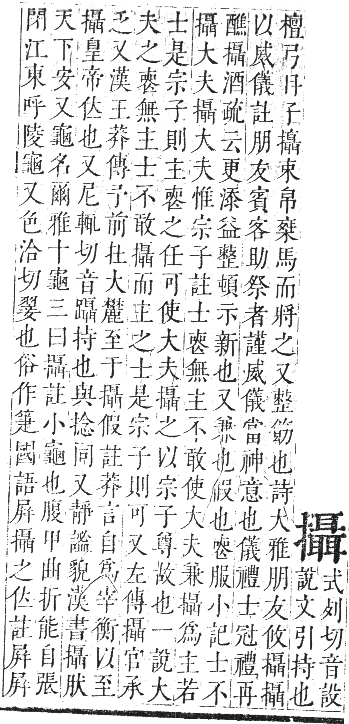 攝
式列切音設
說文引持也
檀弓冉子攝束帛乗馬而將之又整飭也詩大雅朋友攸攝攝
以威儀註朋友賓客助祭者謹威儀當神意也儀禮士冠禮再
醮攝酒疏云更添益整頓示新也又兼也假也喪服小記士不
攝大夫攝大夫惟宗子註士喪無主不敢使大夫兼攝爲主若
士是宗子則主喪之任可使大夫攝之以宗子尊故也一說大
夫之喪無主士不敢攝而主之士是宗子則可又左傳攝官承
乏又漢王莽傳予前在大麓至于攝假註莽言自爲宰衡以至
攝皇帝位也又尼輒切音躡持也與捻同又靜謐貌漢書攝肰
天下安又龜名爾雅十龜三曰攝註小龜也腹甲曲折能自張
閉江東呼陵龜又色洽切翣也俗作箑國語屛攝之位註屛屛